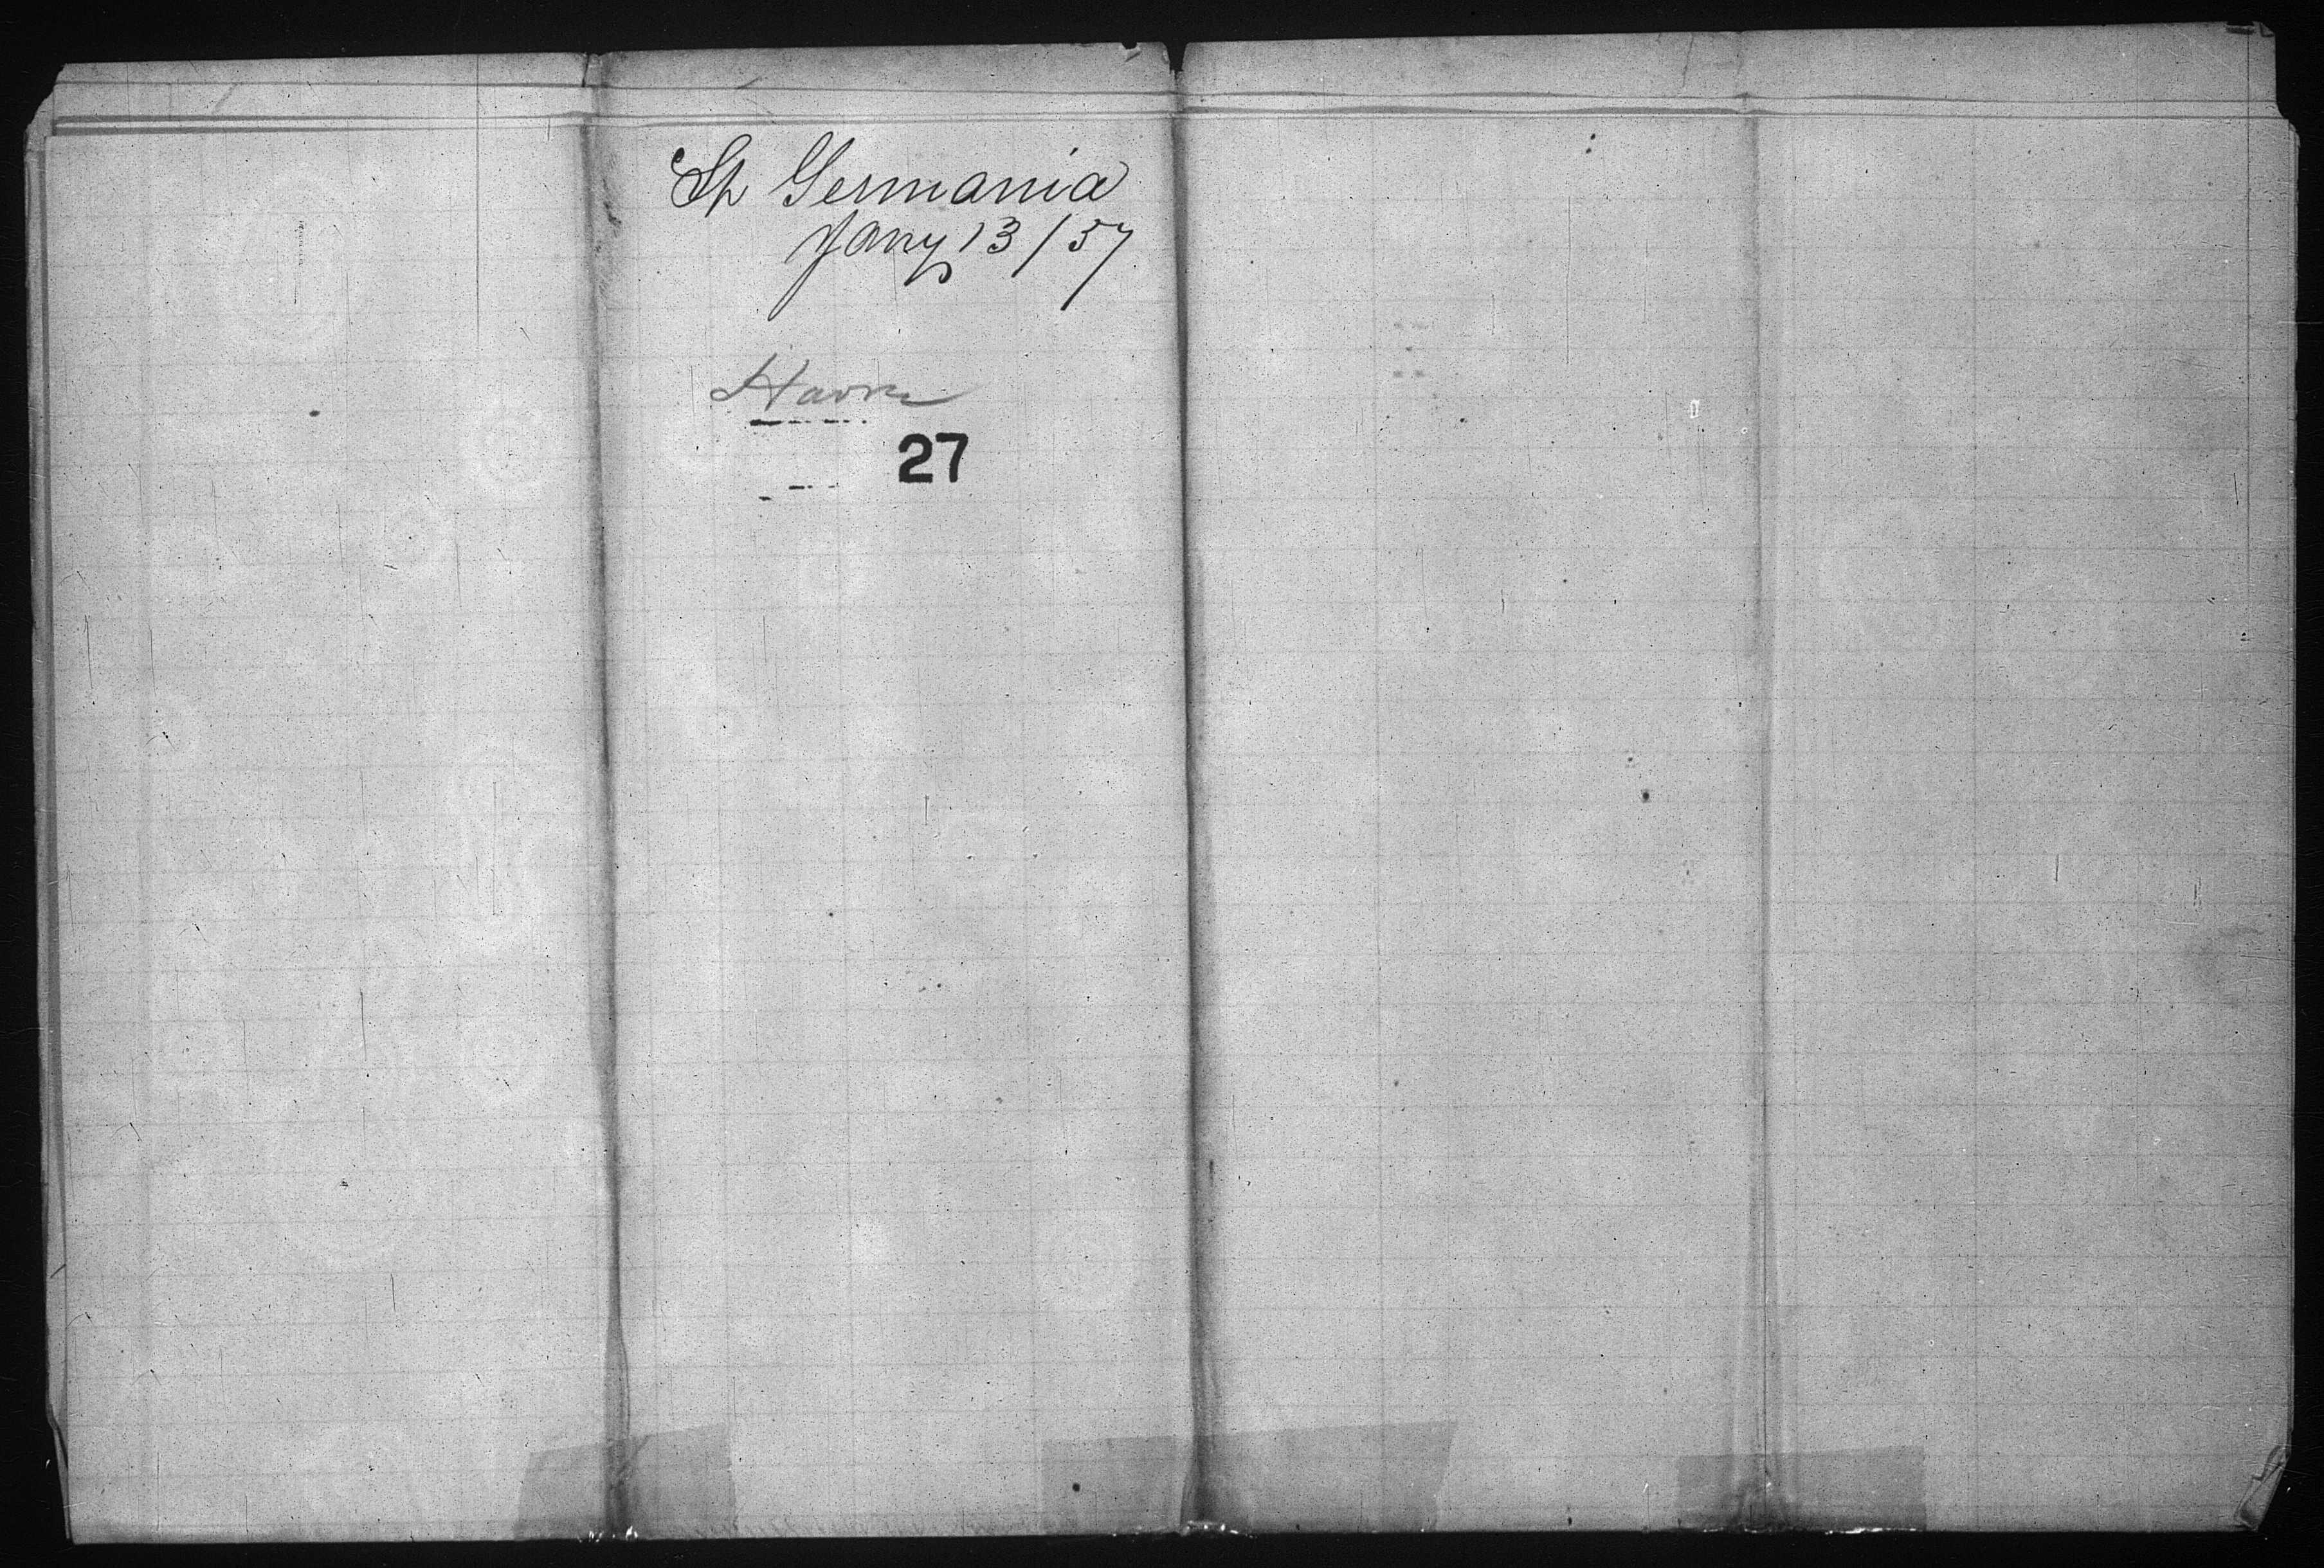 Sh Germania
Jany 13/57
Havre
27